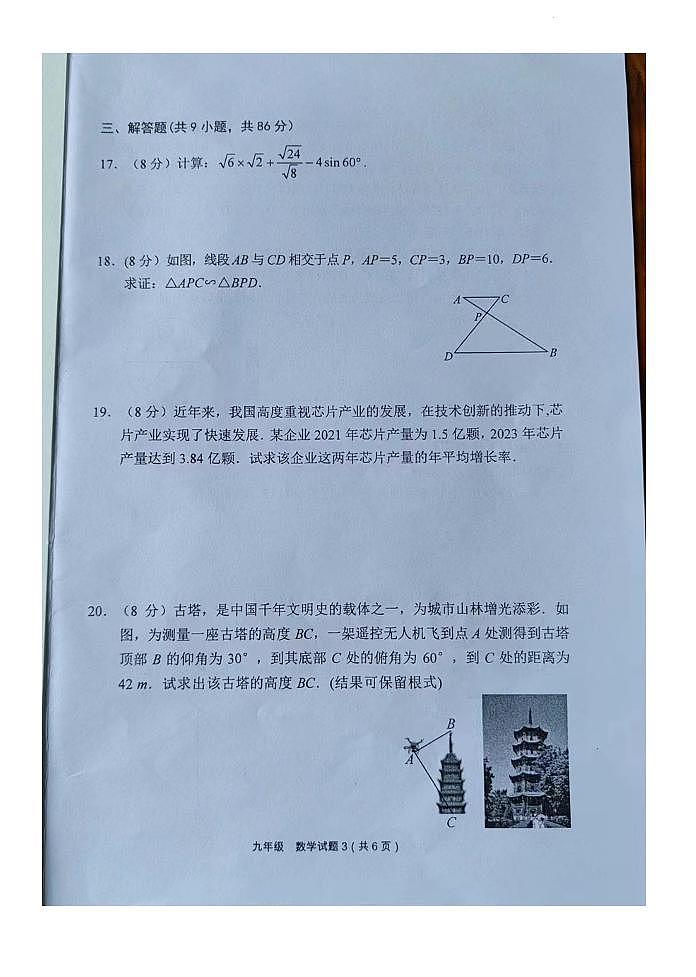 三、解答题(共9小题，共86分)
17．（8分）计算：√6×√2+√24/√8−4sin60°.
18．(8分）如图，线段AB与CD相交于点P，AP=5，CP=3，BP=10，DP=6.
求证：△APC∽△BPD.
A
C
P
D
B
19．（8分）近年来，我国高度重视芯片产业的发展，在技术创新的推动下,芯
片产业实现了快速发展. 某企业2021年芯片产量为1.5亿颗，2023年芯片
产量达到3.84亿颗．试求该企业这两年芯片产量的年平均增长率．
20．（8分）古塔，是中国千年文明史的载体之一，为城市山林增光添彩．如
图，为测量一座古塔的高度BC，一架遥控无人机飞到点A处测得到古塔
顶部B的仰角为30°，到其底部C处的俯角为60°，到C处的距离为
42 m．试求出该古塔的高度BC．(结果可保留根式)
B
A
C
九年级 数学试题3（共6页）